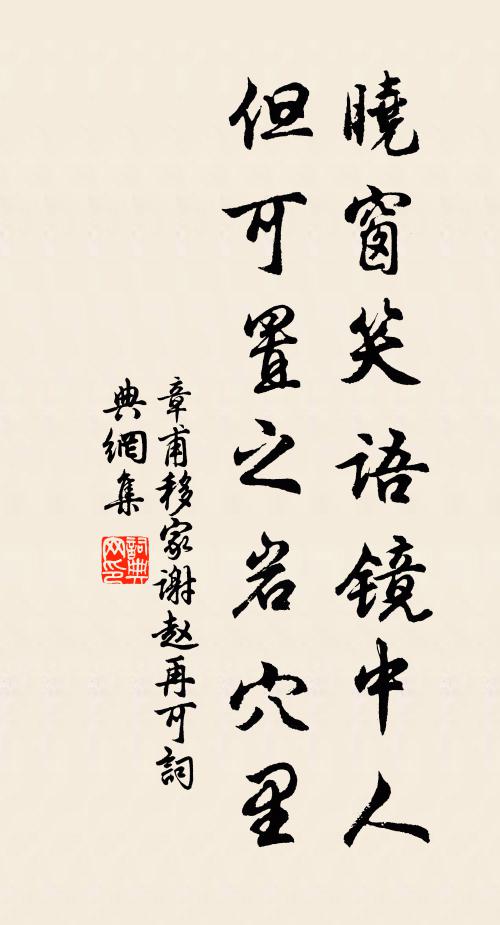 曉窗笑语镜中人
但可置之岩穴里
章甫移家谢赵再可詞
典網集
詞典网印